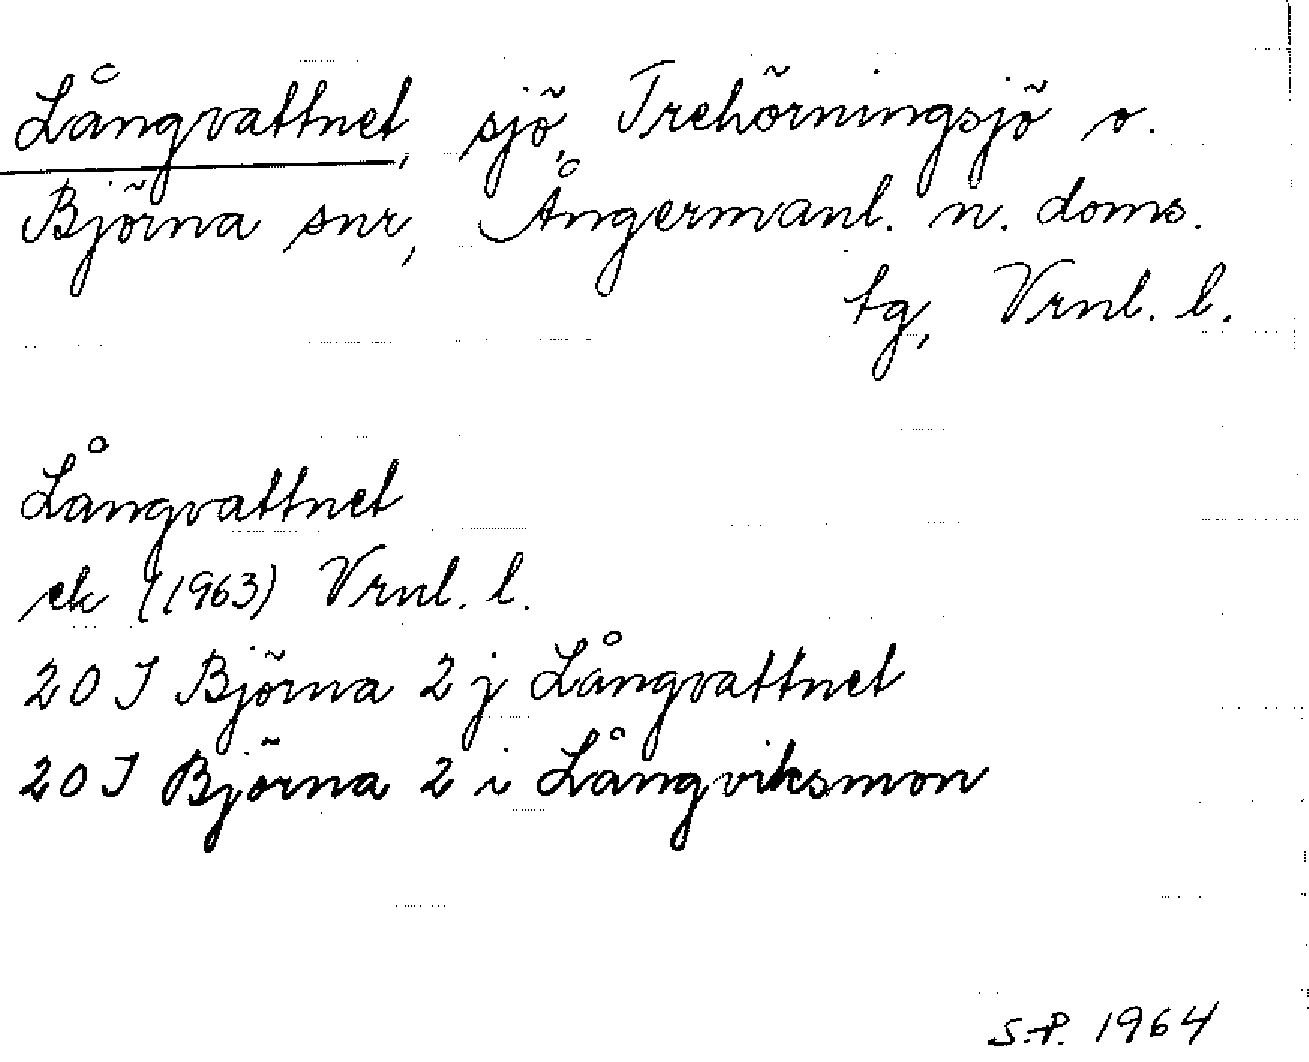 Långvattnet, sjö, Trehörningsjö o.
Björna snr, Ångermanl. n. doms.
tg, Vrnl. l.
Långvattnet
ek (1963) Vrnl. l.
20 I Björna 2 j Långvattnet
20 I Björna 2 i Långviksmon
S.P. 1964